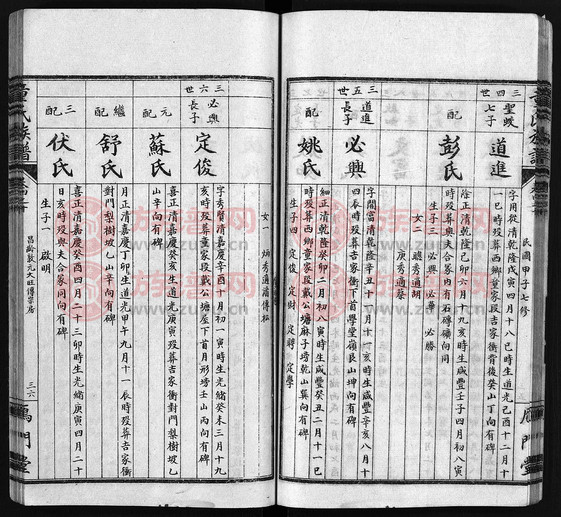 童氏族譜
民國甲子七修
雁門堂
三四世
聖蛟七子
道進
字用從清乾隆戊寅四月十八巳時生道光己酉十二月十一巳時歿葬西鄉童家段吉家衝背後癸山丁向有碑
配
彭氏
除正清乾隆己卯六月十九亥時生咸豐壬子四月初八寅時歿與夫合冢內有石磚礦向同
生子三 必興 必 必勝
女二 聰秀適胡
庚秀適秦
三五世
道進長子
必興
字閣富清乾隆辛丑十月十一亥時生咸豐辛亥八月十四辰時歿葬首學堂嶺艮山坤向有碑
配
姚氏
細正清乾隆癸卯二月初八寅時生咸豐癸丑二月十一巳時歿葬西鄉童家段戴公塘麻子塝乾山巽向有碑
生子四 定俊 定財 定聘 定學
女一 煥秀適潘傳松
三六世
必興長子
定俊
字秀賢清嘉慶辛酉十月初一寅時生光緒癸未三月十九亥時歿葬童家段戴公塘茇下首月形塝壬山丙向有碑
元配
蘇氏
喜正清嘉慶癸亥四月二十三卯時生光緒庚寅四月二十
山辛向有碑
繼配
舒氏
月正清嘉慶丁卯生道光甲午九月十一辰時歿葬吉家衝對門梨樹坡乙山辛向有碑
三配
伏氏
日亥時歿與夫合冢同向有碑
生子一 啟明
昌齡敦元大旺傳榮居
三六
雁門堂
童氏族譜